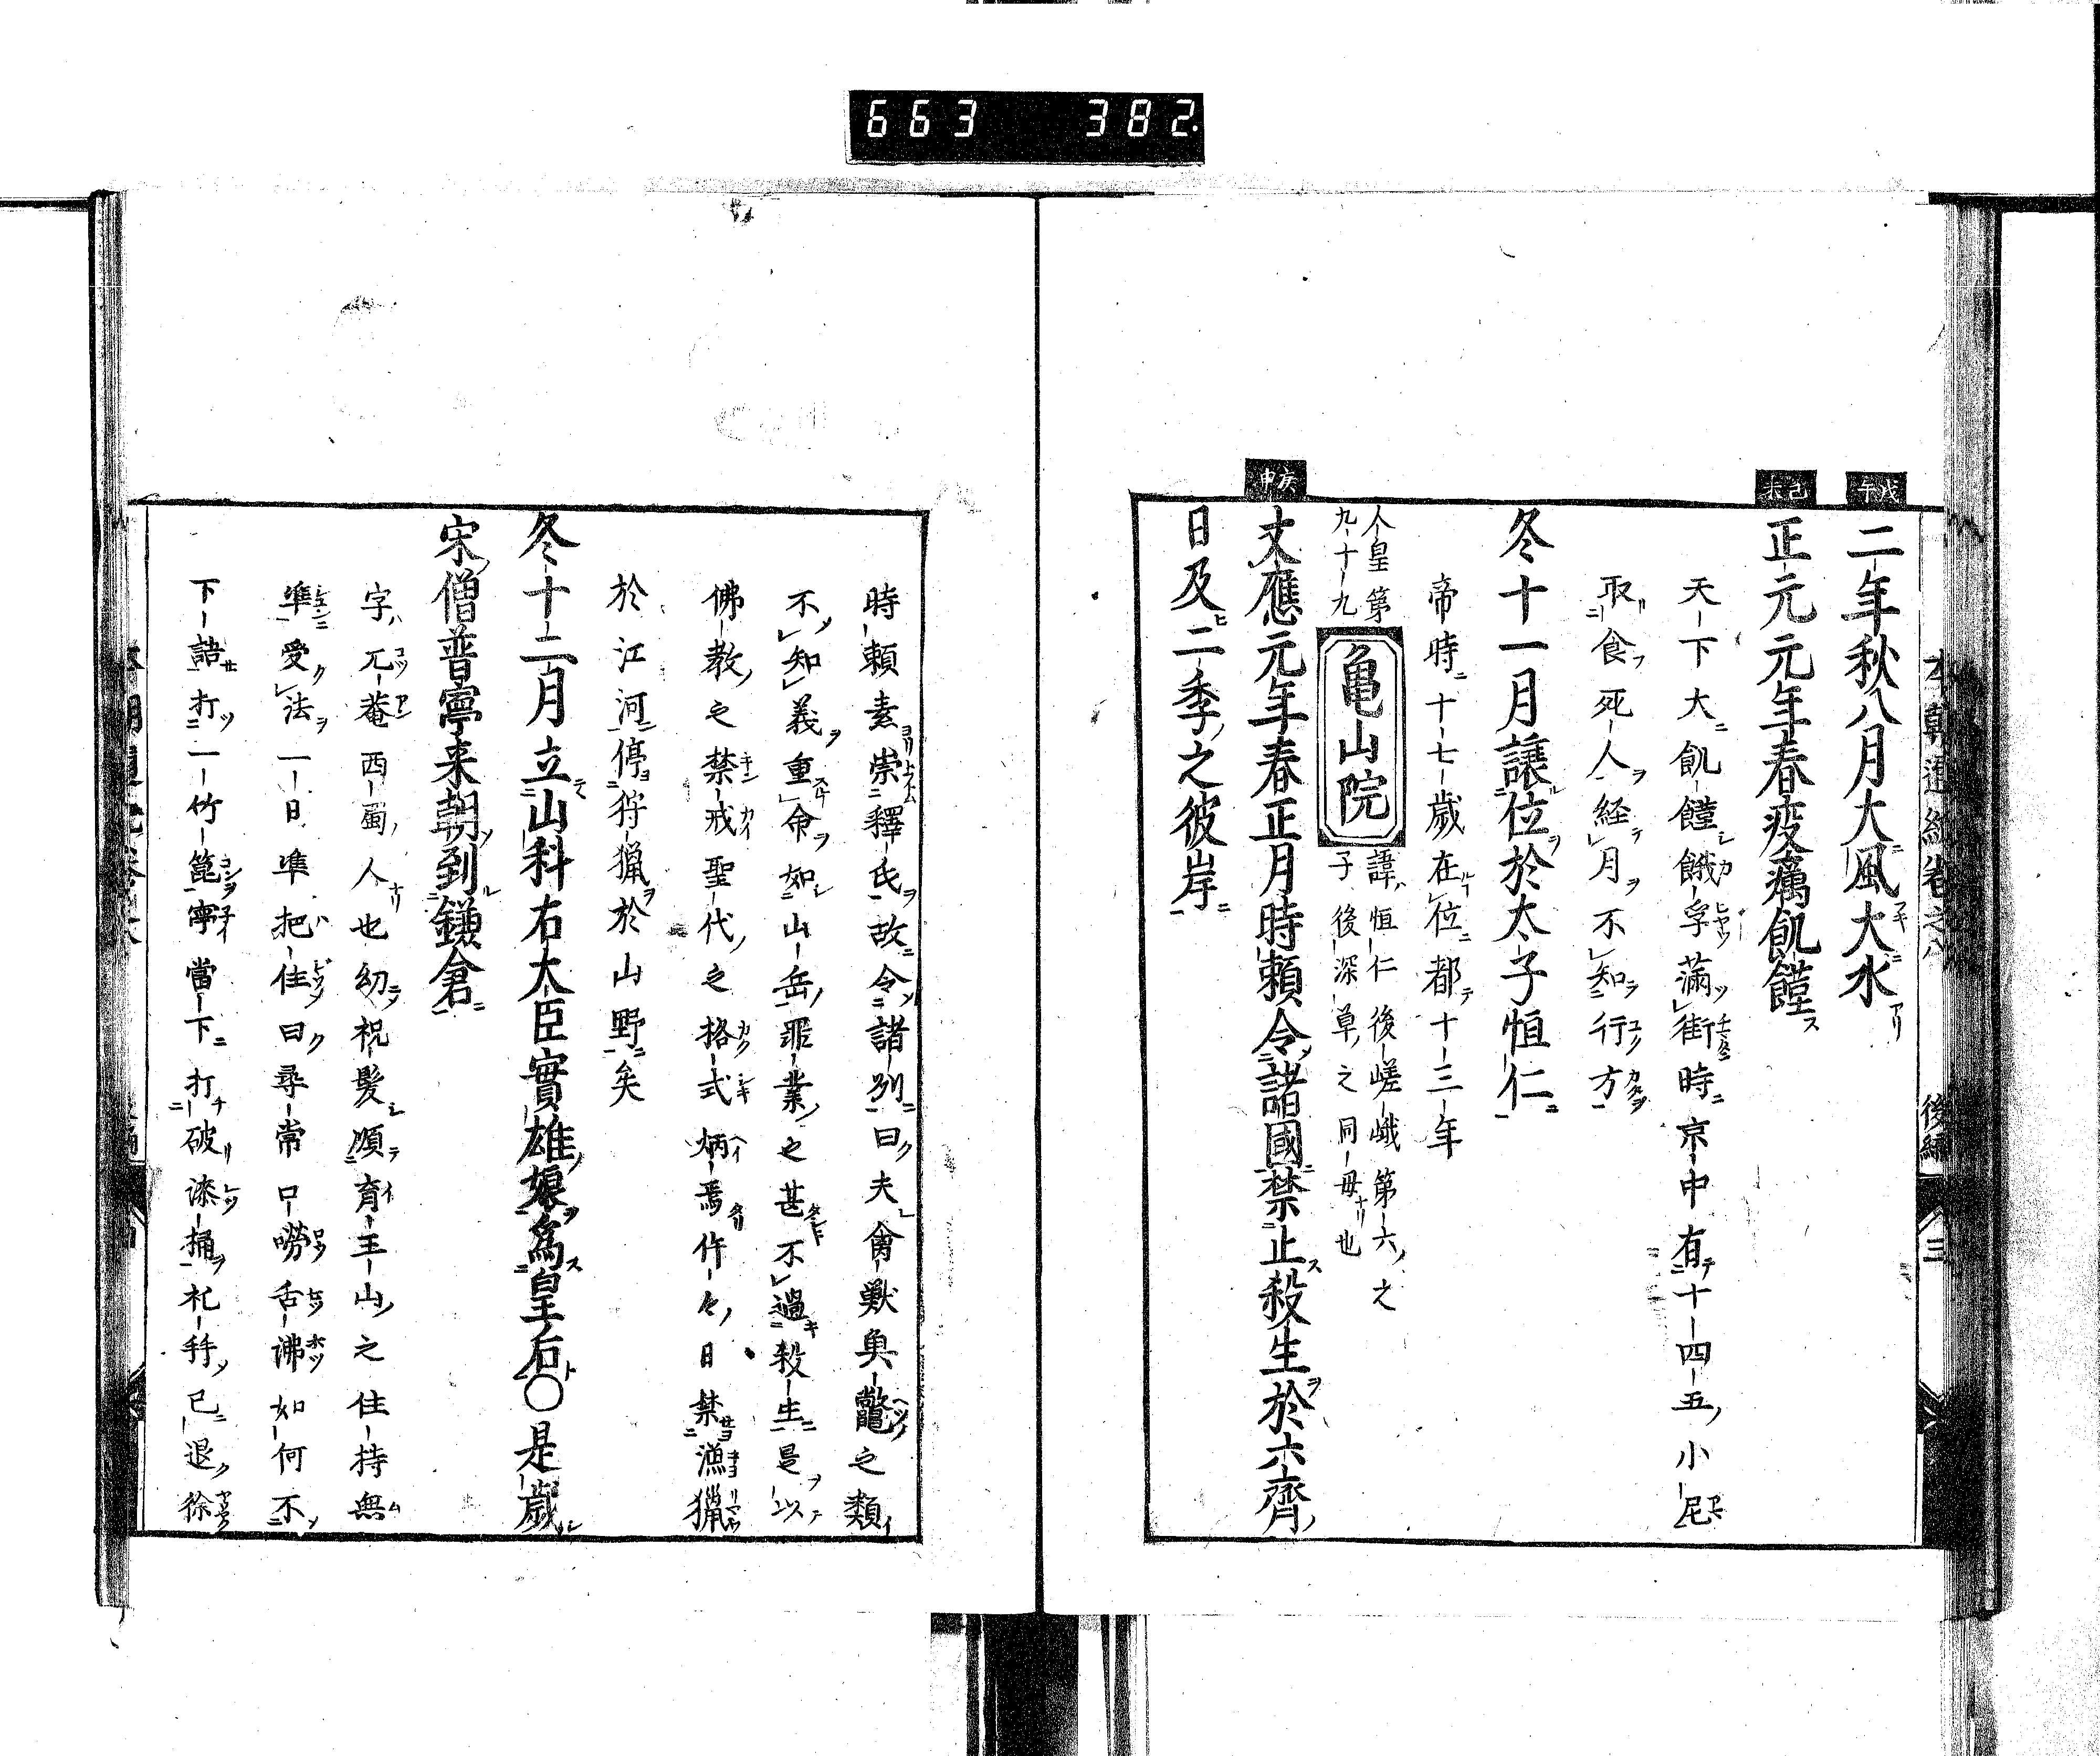 663 382
本朝通紀卷之八 後編 三
戊午
二年秋八月大風大水
己未
正元元年春疫癘飢饉
天下大飢饉餓孚滿街時京中有十四五小尼
取食死人経月不知行方
冬十一月譲位於太子恒仁
帝時十七歳在位都十三年
人皇第
九十九
亀山院
諱恒仁後嵯峨第六之
子後深草之同母也
庚申
文應元年春正月時頼令諸國禁止殺生於六齊
日及二季之彼岸
時頼素崇釋氏故令諸列曰夫禽獣魚鼈之類
不知義重命如山岳罪業之甚不過殺生是以
佛教之禁戒聖代之格式炳焉件々日禁漁獵
於江河停狩猟於山野矣
冬十二月立山科右大臣實雄娘為皇后〇是歳
宋僧普寧来朝到鎌倉
字兀菴西蜀人也幼祝髪順育王山之住持無
準受法一日準把住曰尋常口嘮舌沸如何不
下語打一竹篦寧當下打破漆桶礼拜已退徐